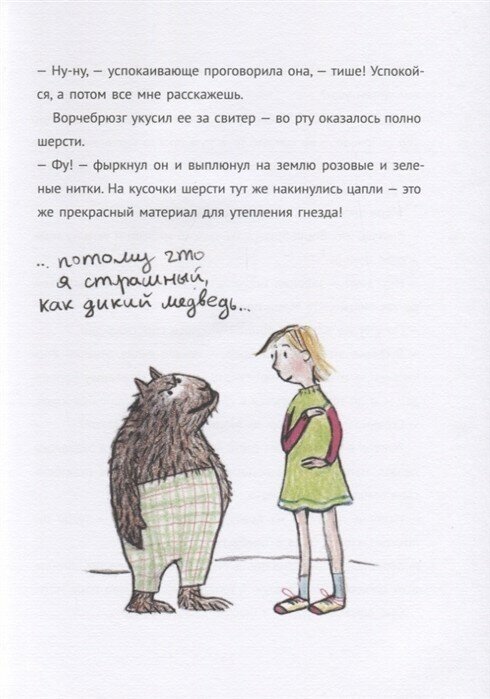 — Ну-ну, — успокаивающе проговорила она, — тише! Успокой-
ся, а потом все мне расскажешь.
Ворчебрюзг укусил ее за свитер — во рту оказалось полно
шерсти.
— Фу! — фыркнул он и выплюнул на землю розовые и зеле-
ные нитки. На кусочки шерсти тут же накинулись цапли — это
же прекрасный материал для утепления гнезда!
... потому что
я страшный,
как дикий медведь...